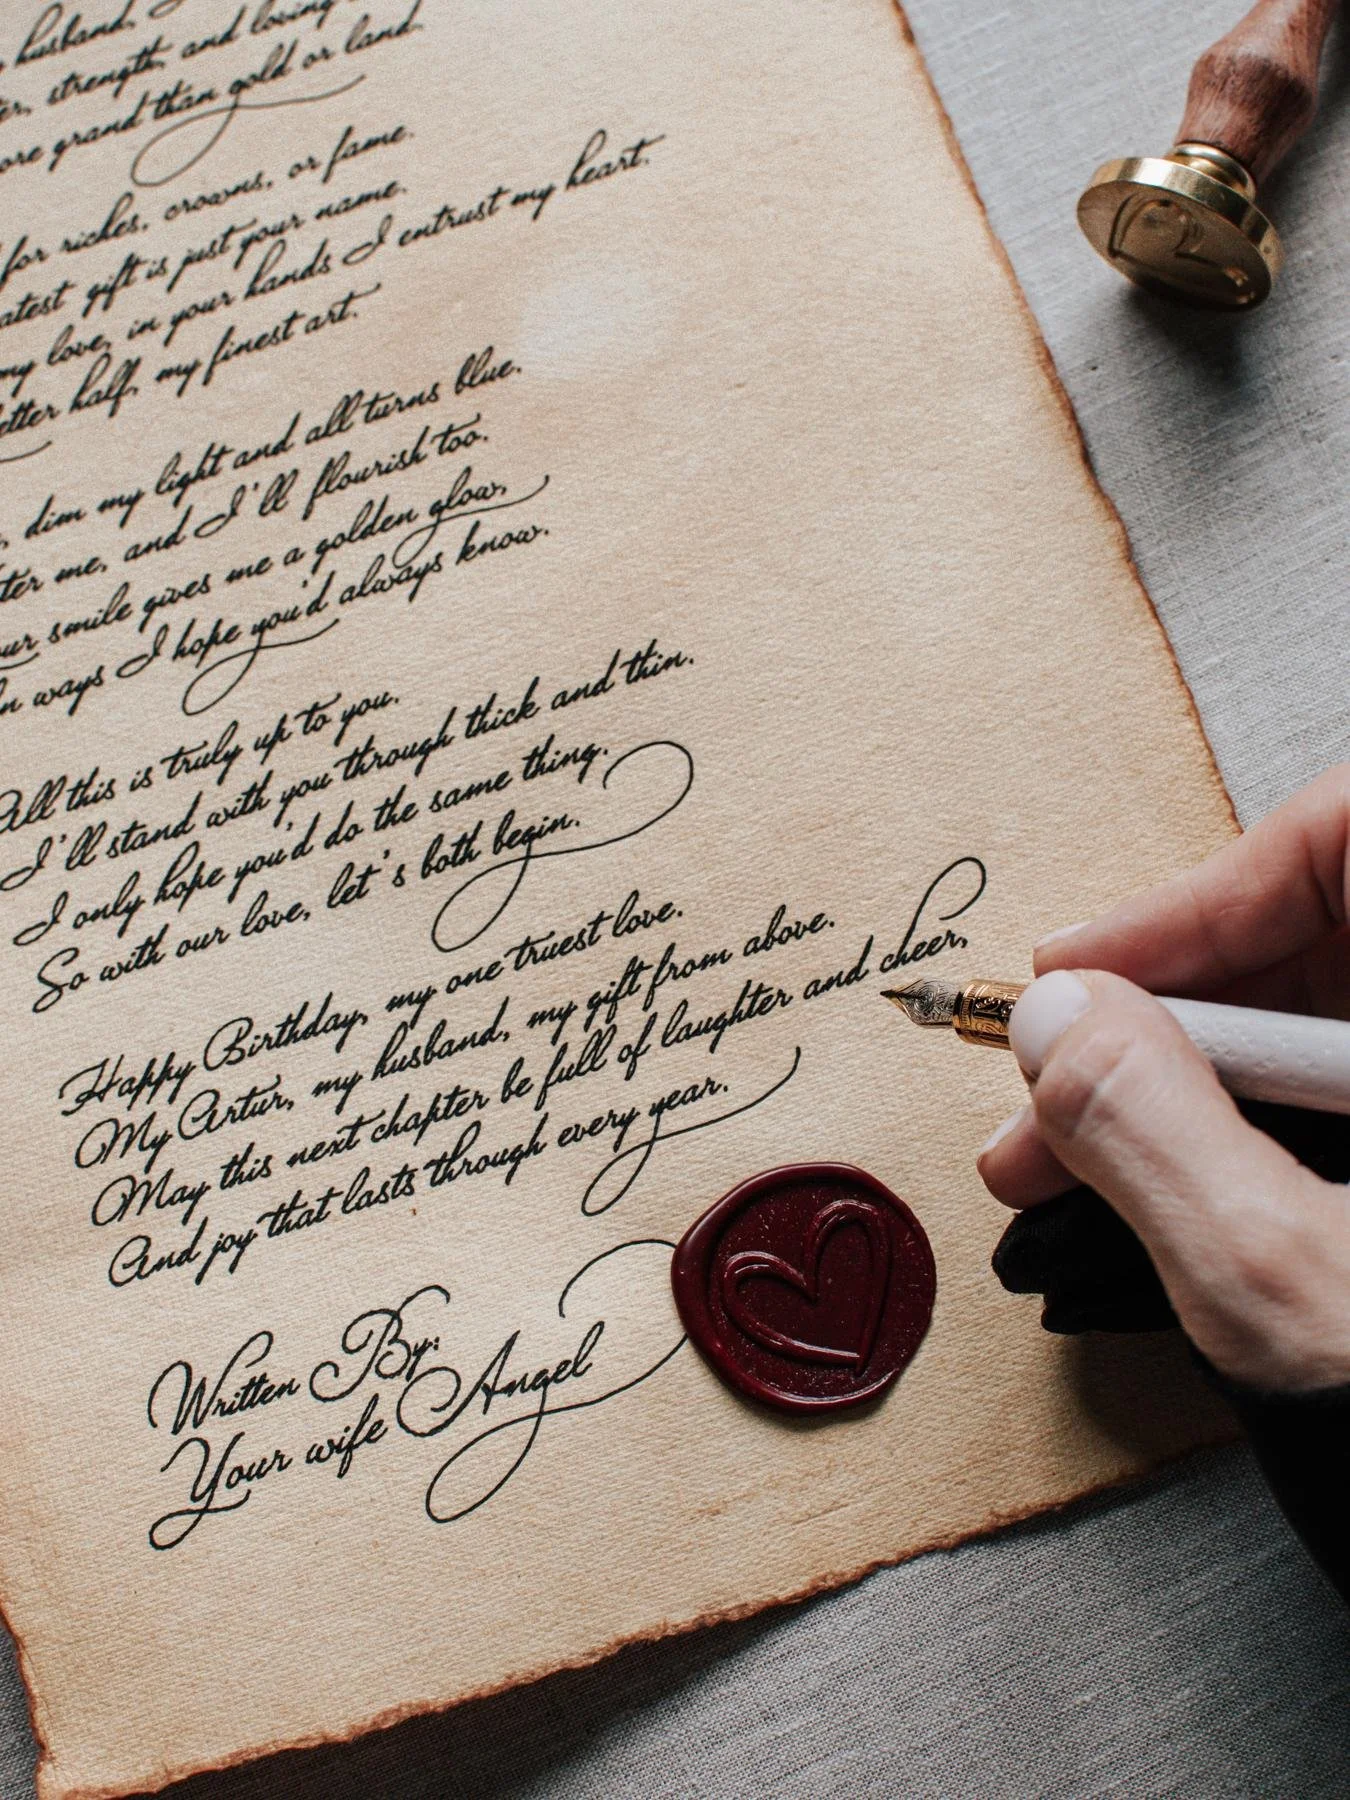 husband,
strength, and loving
grand than gold or land.
for riches, crowns, or fame.
gift is just your name.
my love, in your hands I entrust my heart.
half, my finest art.
dim my light and all turns blue.
me, and I'll flourish too.
smile gives me a golden glow,
ways I hope you'd always know.
All this is truly up to you.
I'll stand with you through thick and thin.
I only hope you'd do the same thing.
So with our love, let's both begin.
Happy Birthday, my one truest love.
My Artur, my husband, my gift from above.
May this next chapter be full of laughter and cheer,
And joy that lasts through every year.
Written By:
Your wife Angel